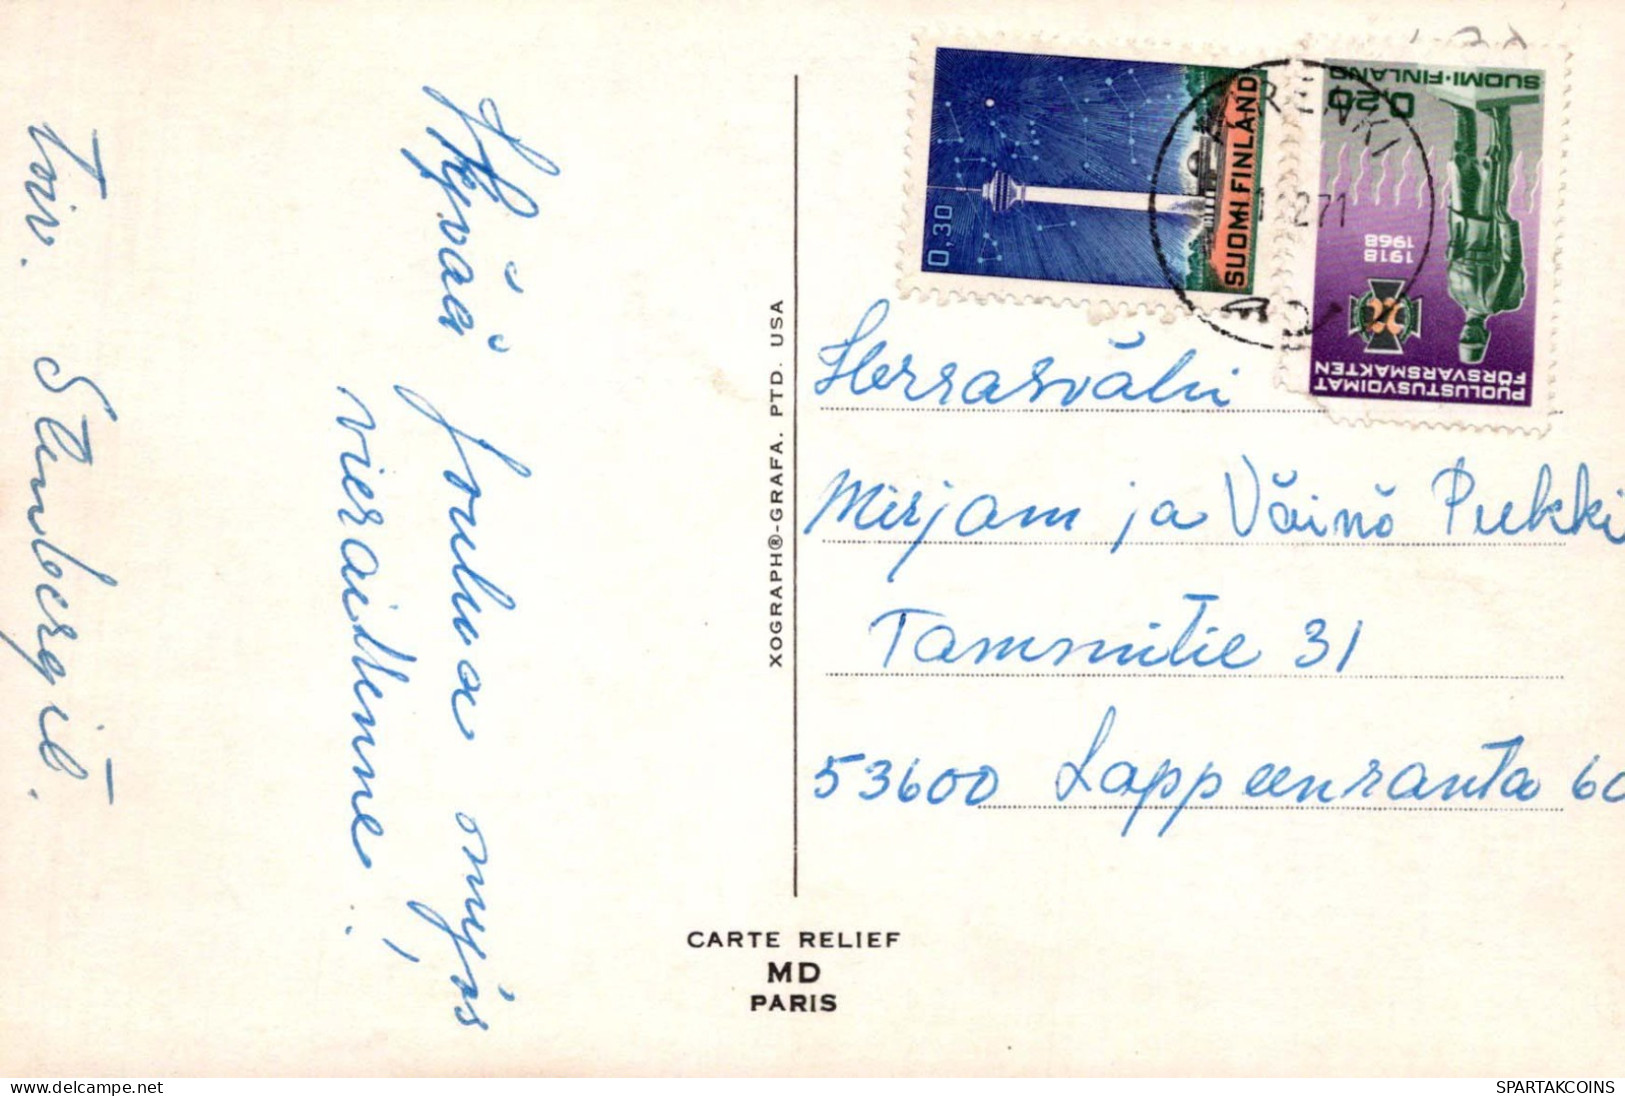 Hyvää joulua myös
vieraillenne!
Toiv. Stenbergit.
XOGRAPH®-GRAFA. PTD. USA
CARTE RELIEF
MD
PARIS
0,30
SUOMI FINLAND
SUOMI-FINLAND
0,20
1918
1968
PUOLUSTUSVOIMAT
FÖRSVARSMAKTEN
271
Herrasväki
Mirjam ja Väinö Pukki
Tammitie 31
53600 Lappeenranta 60
delcampe.net
SPARTAKCOINS